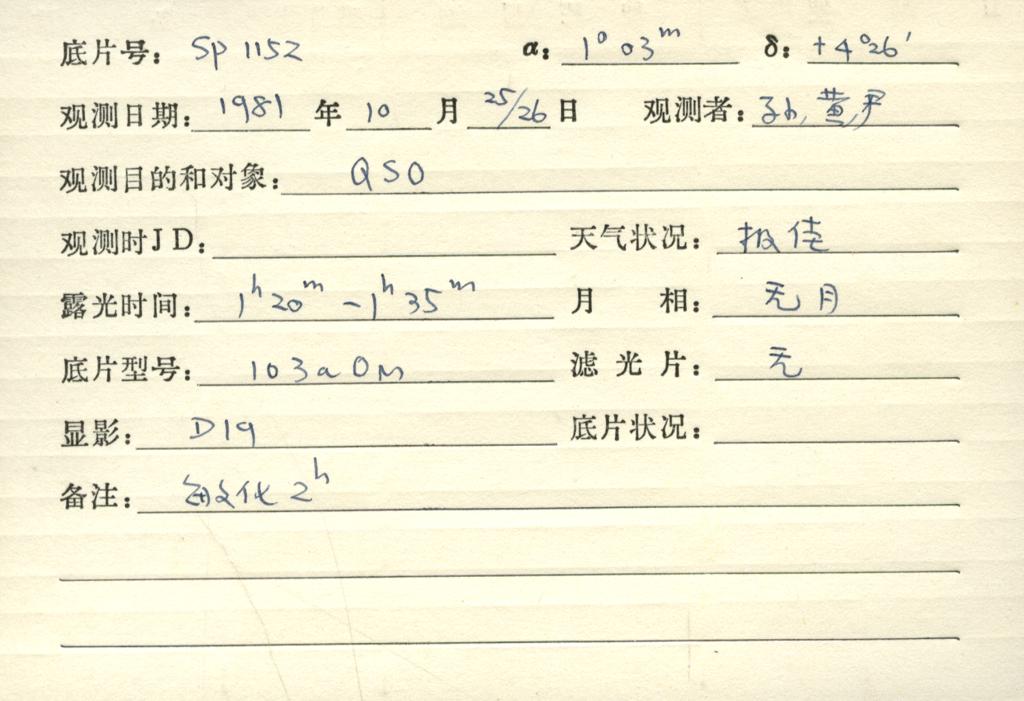 底片号: Sp 1152 α: 1° 03ᵐ δ: +4°26′
观测日期: 1981 年 10 月 25/26 日 观测者: 孙, 黄, 尹
观测目的和对象: QSO
观测时JD: 天气状况: 极佳
露光时间: 1ʰ20ᵐ-1ʰ35ᵐ 月 相: 无月
底片型号: 103aOm 滤光片: 无
显影: D19 底片状况:
备注: 敏化 2ʰ